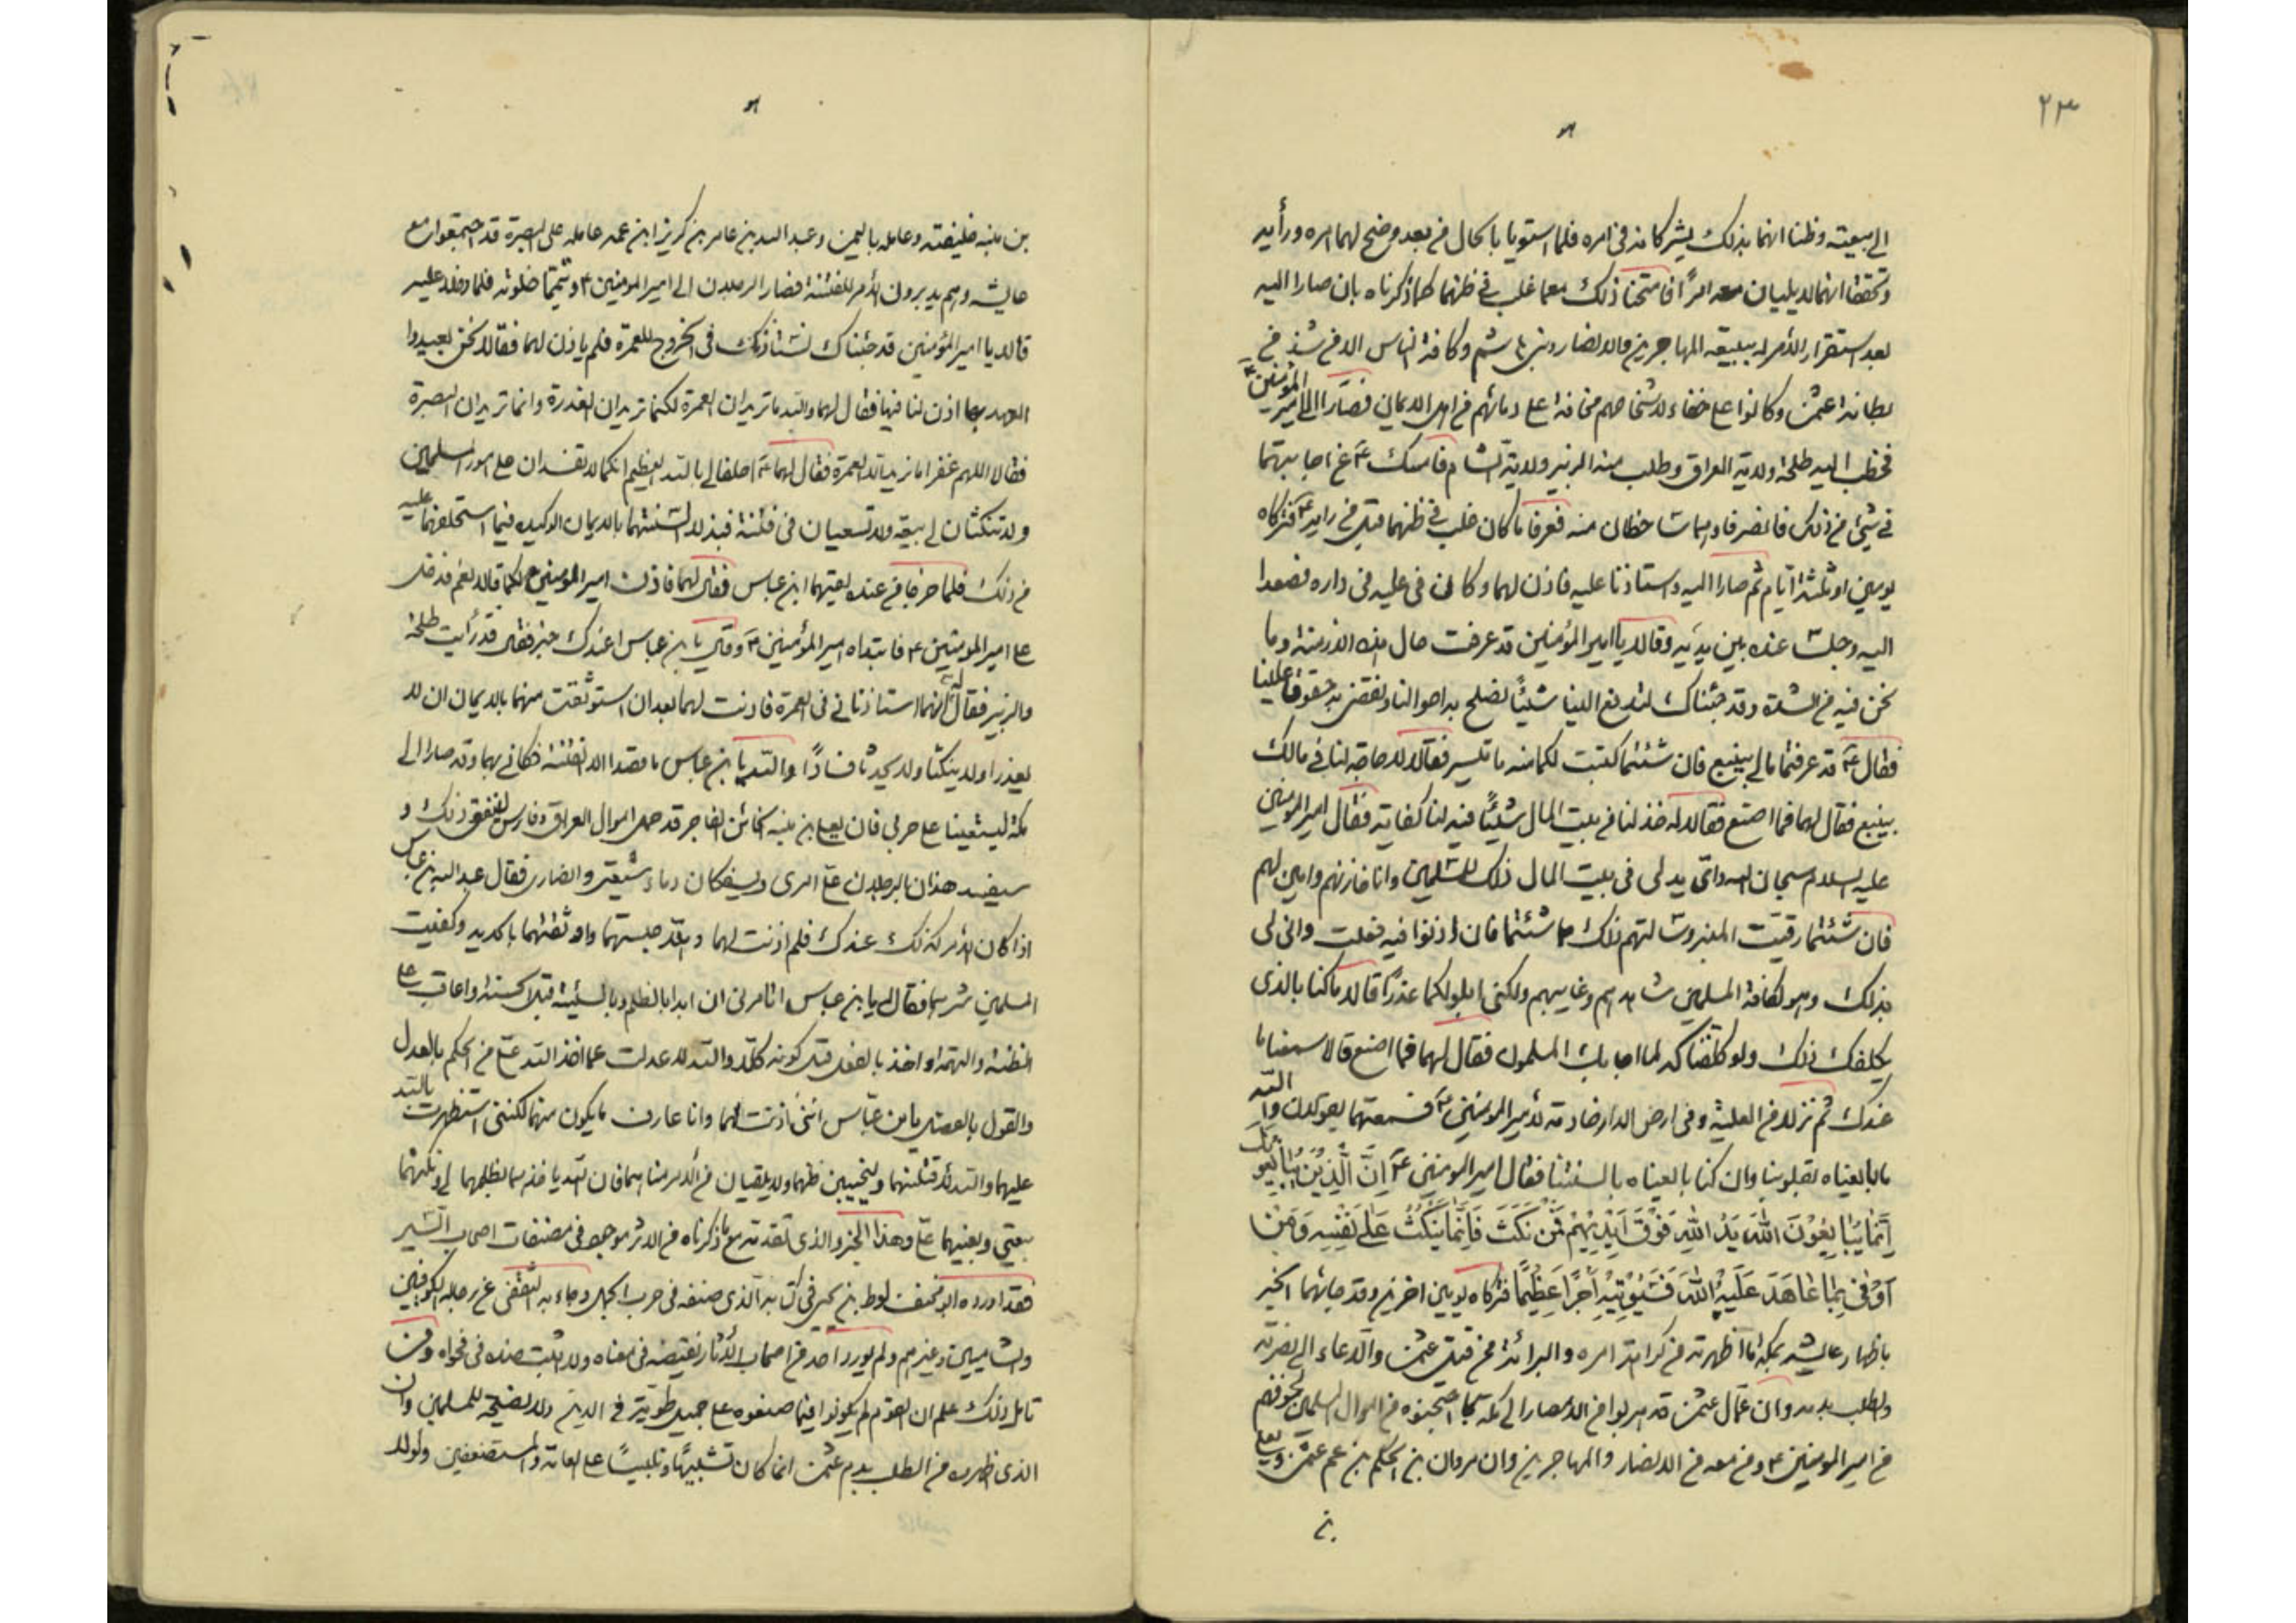 ٢٣
الى بيعته وظنا انهما بذلك يشركانه فى امره فلما استويا بالحال من بعد وضح لهما امره ورأيه
وتحققا انهما لا يليان معه امرًا فامتحنا ذلك معما غلب فى ظنهما كما ذكرناه بان صارا اليه
بعد استقرار الأمر له ببيعة المهاجرين والانصار وبنى هاشم وكافة الناس الا من شذ من
بطانة عثمن وكانوا على خفاء لاشخاصهم مخافة على دمائهم من اهل الايمان فصارا الى امير المؤمنين ع
فخطب اليه طلحة ولاية العراق وطلب منه الزبير ولاية الشام فامسك ع عن اجابتهما
فى شئ من ذلك فانصرفا وهما ساخطان منه فعرفا ما كان غلب فى ظنهما قبل من رايه ع فتركاه
يومين او ثلثة أيام ثم صارا اليه واستاذنا عليه فاذن لهما وكان فى علية فى داره فصعدا
اليه وجلسا عنده بين يديه وقالا يا امير المؤمنين قد عرفت حال هذه الازمنة وما
نحن فيه من الشدة وقد جئناك لتدفع الينا شيئًا نصلح به احوالنا ونقضى به حقوقا علينا
فقال ع قد عرفتما مالى بينبع فان شئتما كتبت لكما منه ما تيسر فقالا لا حاجة لنا فى مالك
بينبع فقال لهما فما اصنع فقالا له خذ لنا من بيت المال شيئًا فيه لنا كفاية فقال امير المؤمنين
عليه السلام سبحان الله واى يد لى فى بيت المال ذلك للمسلمين وانا خازنهم وامين لهم
فان شئتما رقيت المنبر وسالتهم ذلك ما شئتما فان اذنوا فيه فعلت وانى لى
بذلك وهو لكافة المسلمين شاهدهم وغايبهم ولكنى ابلو لكما عذرًا قالا ما كنا بالذى
يكلفك ذلك ولو كلفناكه لما اجابك المسلمون فقال لهما فما اصنع قالا سمعنا ما
عندك ثم نزلا من العلية وفى ارض الدار خادمة لأمير المؤمنين ع فسمعتهما يقولان والله
ما بايعناه بقلوبنا وان كنا بايعناه بالسنتنا فقال امير المومنين ع إِنَّ الَّذِينَ يُبَايِعُونَكَ
إِنَّمَا يُبَايِعُونَ اللَّهَ يَدُ اللَّهِ فَوْقَ أَيْدِيهِمْ فَمَنْ نَكَثَ فَإِنَّمَا يَنْكُثُ عَلَى نَفْسِهِ وَمَنْ
أَوْفَى بِمَا عَاهَدَ عَلَيْهُ اللَّهَ فَسَيُؤْتِيهِ أَجْرًا عَظِيمًا فتركاه يومين اخرين وقد جائهما الخبر
باظهار عايشه بمكة ما اظهرته من كراهة امره والبرائة من قتل عثمن والدعاء الى نصرته
والطلب بدمه وان عمّال عثمن قد هربوا من الامصار الى مكة بما احتجنوه من اموال المسلمين لخوفهم
من امير المومنين ع ومن معه من الانصار والمهاجرين وان مروان بن الحكم بن عم عثمن ويعلى
بن
بن منبه خليفته وعامله باليمن وعبد الله بن عامر بن كريز ابن عمه عامله على البصرة قد اجتمعوا مع
عايشه وهم يدبرون الأمر للفتنة فصار الرجلان الى امير المومنين ع وتيمما خلوته فلما دخلا عليه
قالا يا امير المؤمنين قد جئناك نستاذنك فى الخروج للعمرة فلم ياذن لهما فقالا نحن بعيدوا
العهد بها اذن لنا فيها فقال لهما والله ما تريدان العمرة لكنكما تريدان الغدرة وانما تريدان البصرة
فقالا اللهم غفرا ما نريد الا العمرة فقال لهما ع احلفا لى بالله العظيم انكما لا تفسدان على امور المسلمين
ولا تنكثان لى بيعة ولا تسعيان فى فتنة فبذلا السنتهما بالايمان الوكيده فيما استحلفهما عليه
من ذلك فلما خرجا من عنده لقيهما ابن عباس فقال لهما فاذن امير المومنين لكما قالا نعم فدخل
على امير المومنين ع فابتداه امير المؤمنين ع وقال يا بن عباس اعندك خبر فقال قد رأيت طلحة
والزبير فقال له انهما استاذنانى فى العمرة فاذنت لهما بعد ان استوثقت منهما بالايمان ان لا
يغدرا ولا ينكثا ولا يحدثا فسادًا والله يا بن عباس ما قصدا الا الفتنة فكانى بهما وقد صارا الى
مكة ليستعينا على حربى فان يعلى بن منبه الخائن الفاجر قد حمل اموال العراق وفارس لينفق ذلك و
سيفسد هذان الرجلان على امرى ويسفكان دماء شيعتى وانصارى فقال عبد الله بن عباس
اذا كان الأمر كذلك عندك فلم اذنت لهما وهلا حبستهما واوثقتهما بالحديد وكفيت
المسلمين شرهما فقال له يا بن عباس اتامرنى ان ابدا بالظلم وبالسيئة قبل الحسنة واعاقب على
الظنة والتهمة او اخذ بالفعل قبل كونه كلا والله لا عدلت عما اخذ الله على من الحكم بالعدل
والقول بالفصل يا بن عبّاس اننى اذنت لهما وانا عارف ما يكون منهما لكننى استظهرت بالله
عليهما والله لأقتلنهما وليخيبن ظنهما ولا يلقيان من الأمر مناهما فان الله ياخذهما بظلمهما لى ونكثهما
بيعتى وبغيهما على وهذا الخبر والذى تقدم مع ما ذكرناه من الاثر موجود فى مصنفات اصحاب السير
فقد اورده ابو مخنف لوط بن يحيى فى كتابه الذى صنفه فى حرب الجمل وجاء به الثقفى عن رجاله الكوفيين
والشاميين وغيرهم ولم يورد احد من اصحاب الأثار نقيضه فى معناه ولا اثبت ضده فى فحواه ومن
تامل ذلك علم ان القوم لم يكونوا فيما صنعوه على جميل طوية فى الدين ولا نصيحة للمسلمين وان
الذى اظهروه من الطلب بدم عثمن انما كان تشبيهًا وتلبيسًا على العامة والمستضعفين ولولا